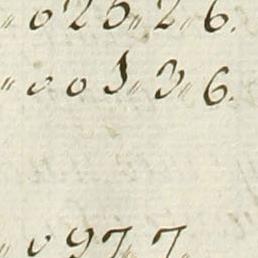 „ 025„ 2„ 6.
„ 005„ 3„ 6.
„ 097„ 7